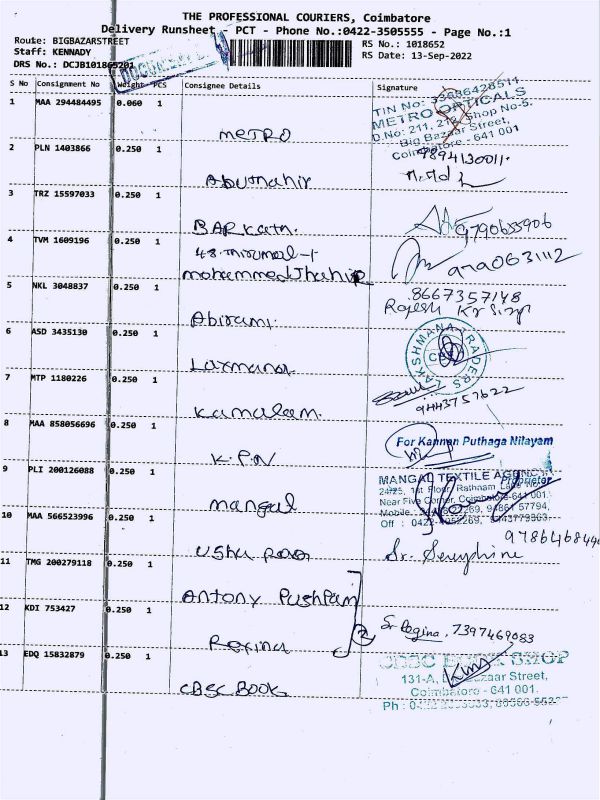 THE PROFESSIONAL COURIERS, Coimbatore
Delivery Runsheet - PCT - Phone No.:0422-3505555 - Page No.:1
Route: BIGBAZARSTREET
Staff: KENNADY
DRS No.: DCJB101865201
RS No.: 1018652
RS Date: 13-Sep-2022
DOCUMENTS
S No Consignment No Weight PCS Consignee Details Signature
1 MAA 294484495 0.060 1
METRO
TIN No: 33686428511
METRO OPTICALS
D.No: 211, Shop No-5.
Big Bazaar Street,
Coimbatore - 641 001
9894130011.
2 PLN 1403866 0.250 1
Abuthahir
3 TRZ 15597033 0.250 1
BARKath.
9790655906
4 TVM 1609196 0.250 1
mohammed Jhahir
5 NKL 3048837 0.250 1
Abirami.
8667357148
Rajesh Kr
6 ASD 3435130 0.250 1
Laxmana
LAKSHMANA TRADERS
7 MTP 1180226 0.250 1
Kamalam.
9443757622
8 MAA 858056696 0.250 1
K.P.N
For Kannan Puthaga Nilayam
Proprietor
9 PLI 200126088 0.250 1
mangal
MANGAL TEXTILE AGENCY
24/25, 1st Floor, Rathnam Lane
Near Five Corner, Coimbatore-641 001.
Mobile 57794,
Off : 0422
10 MAA 566523996 0.250 1
Usha
Sr. Seruphine
11 TMG 200279118 0.250 1
Antony Pushpam
12 KDI 753427 0.250 1
Rexina
Sr Regina, 7397469083
13 EDQ 15832879 0.250 1
CBSC BOOK
CBSC BOOK SHOP
131-A, Big Bazaar Street,
Coimbatore - 641 001.
Ph :